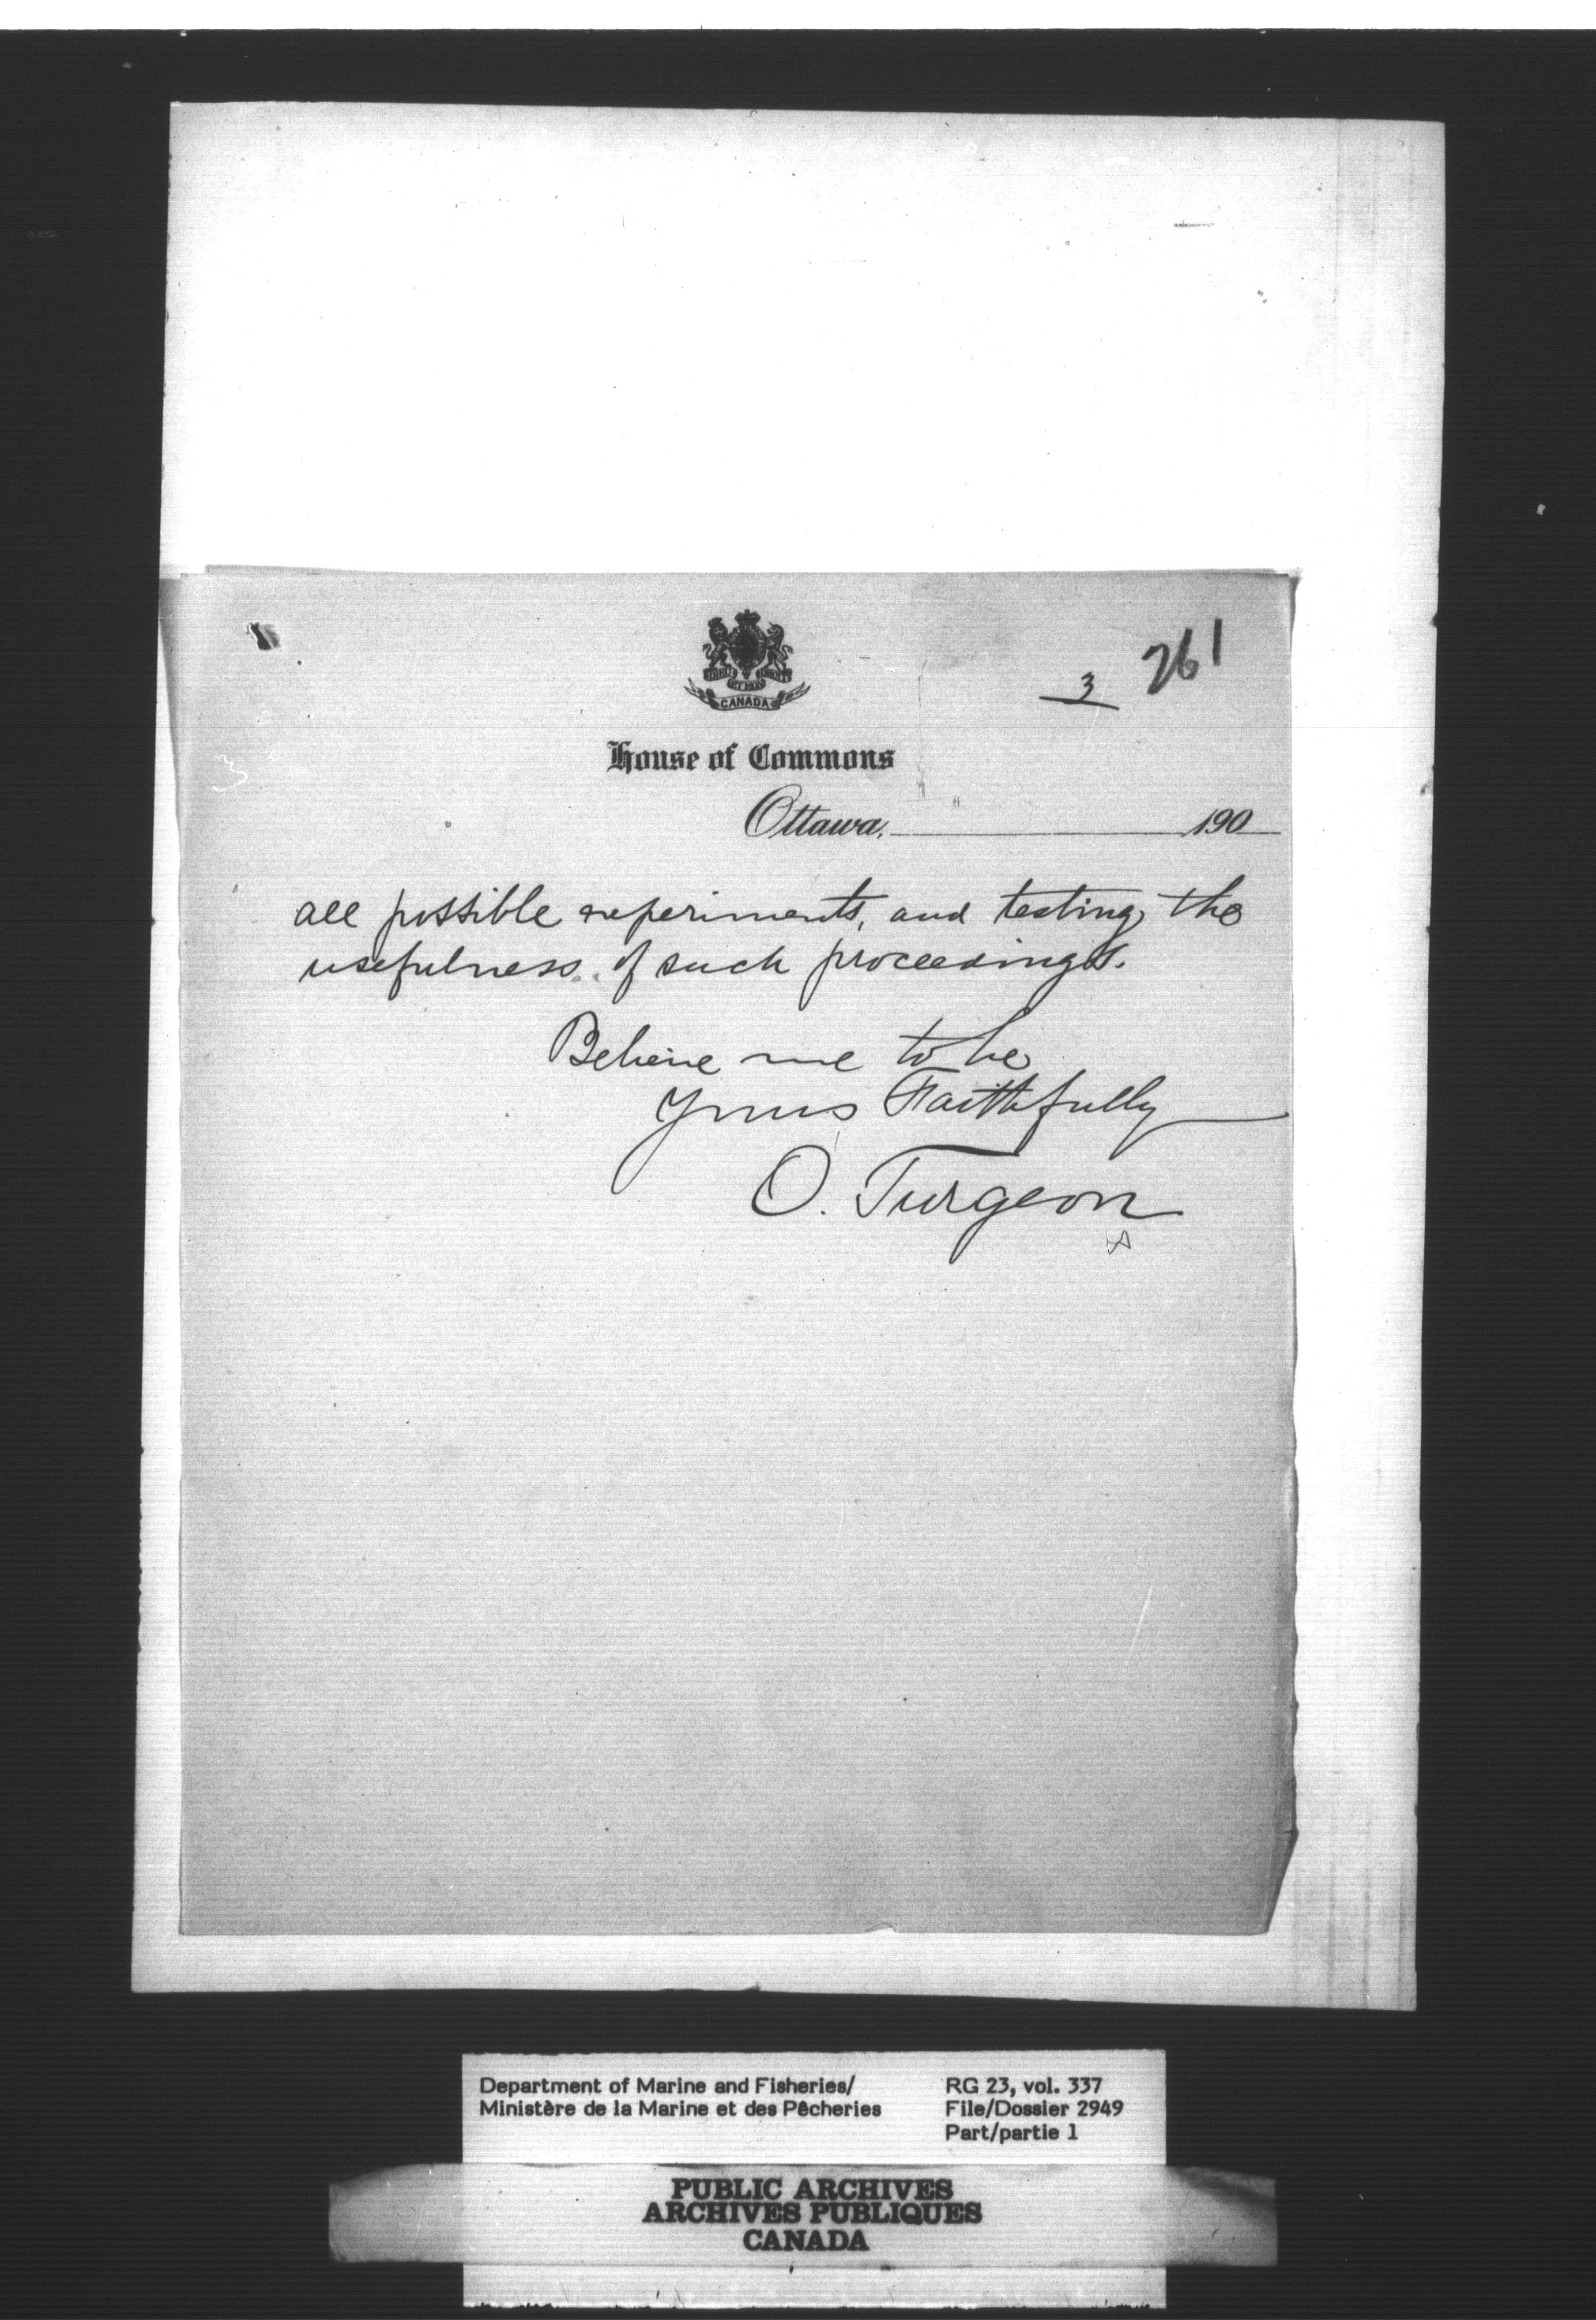 3
261
CANADA
House of Commons
Ottawa, 190
all possible experiments, and testing the
usefulness of such proceedings.
Believe me to be
Yours Faithfully
O. Turgeon
Department of Marine and Fisheries/ RG 23, vol. 337
Ministère de la Marine et des Pêcheries File/Dossier 2949
Part/partie 1
PUBLIC ARCHIVES
ARCHIVES PUBLIQUES
CANADA